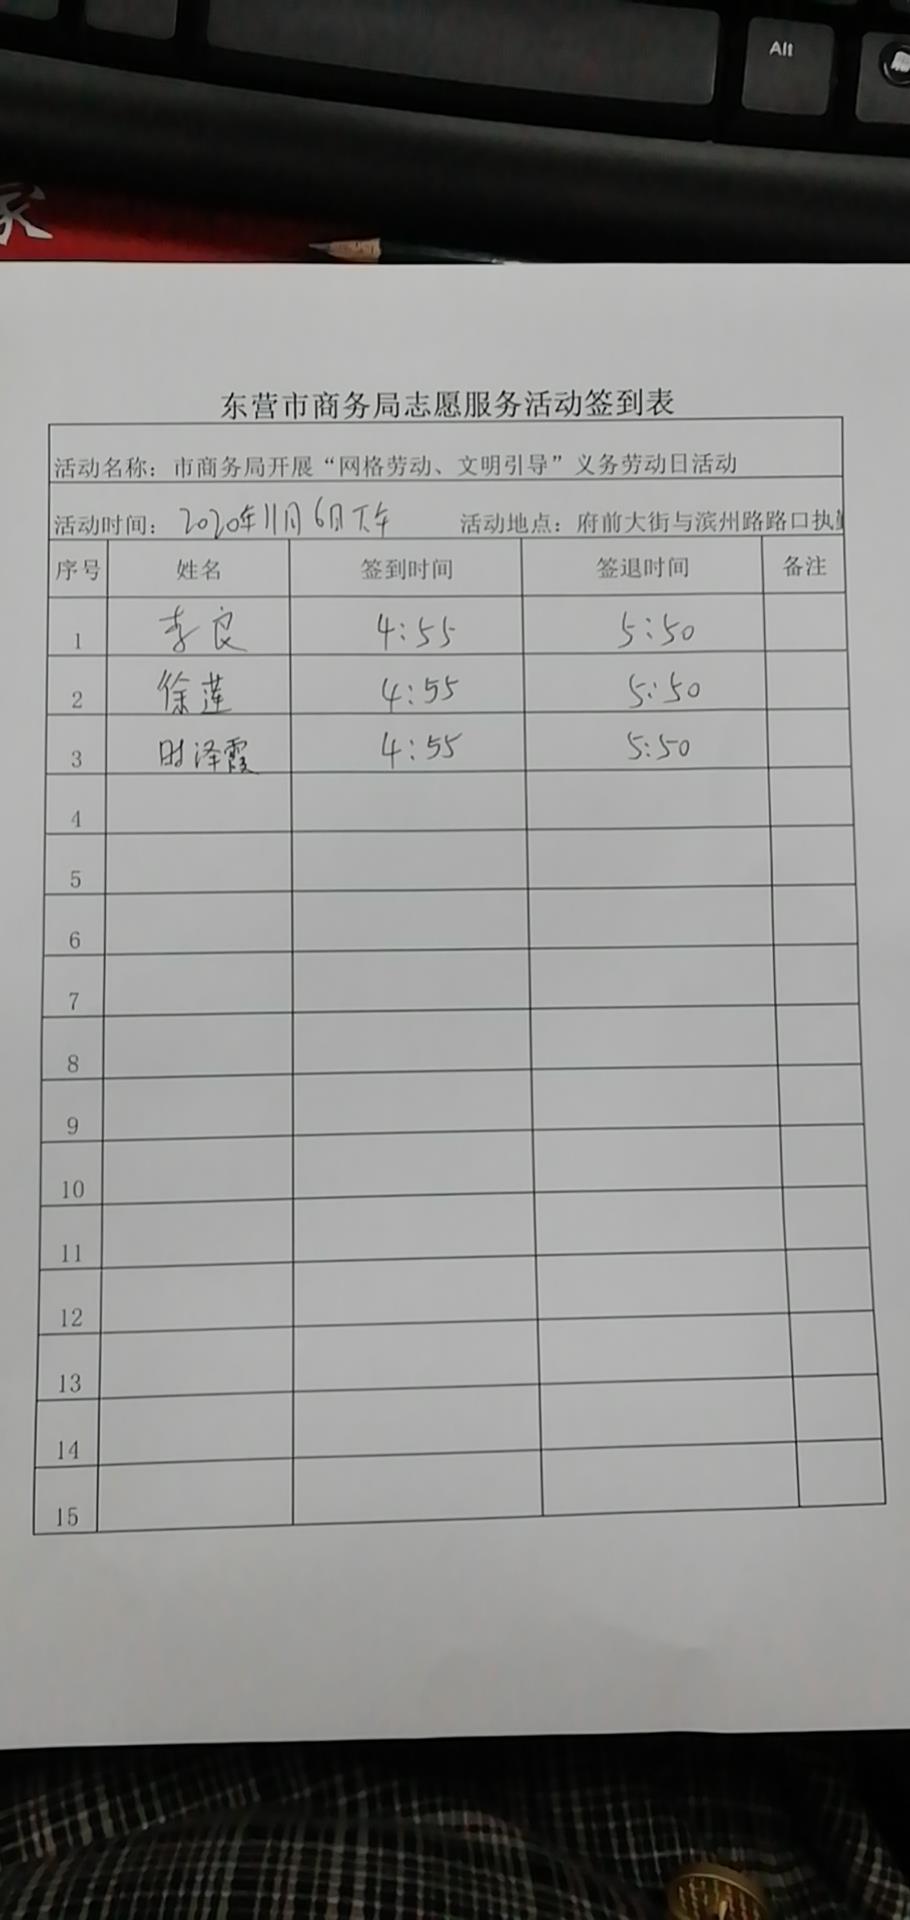 Alt
家
东营市商务局志愿服务活动签到表
活动名称：市商务局开展“网格劳动、文明引导”义务劳动日活动
活动时间： 2020年11月6日下午 活动地点：府前大街与滨州路路口执勤
序号 姓名 签到时间 签退时间 备注
1 李良 4:55 5:50
2 徐莲 4:55 5:50
3 时泽霞 4:55 5:50
4
5
6
7
8
9
10
11
12
13
14
15